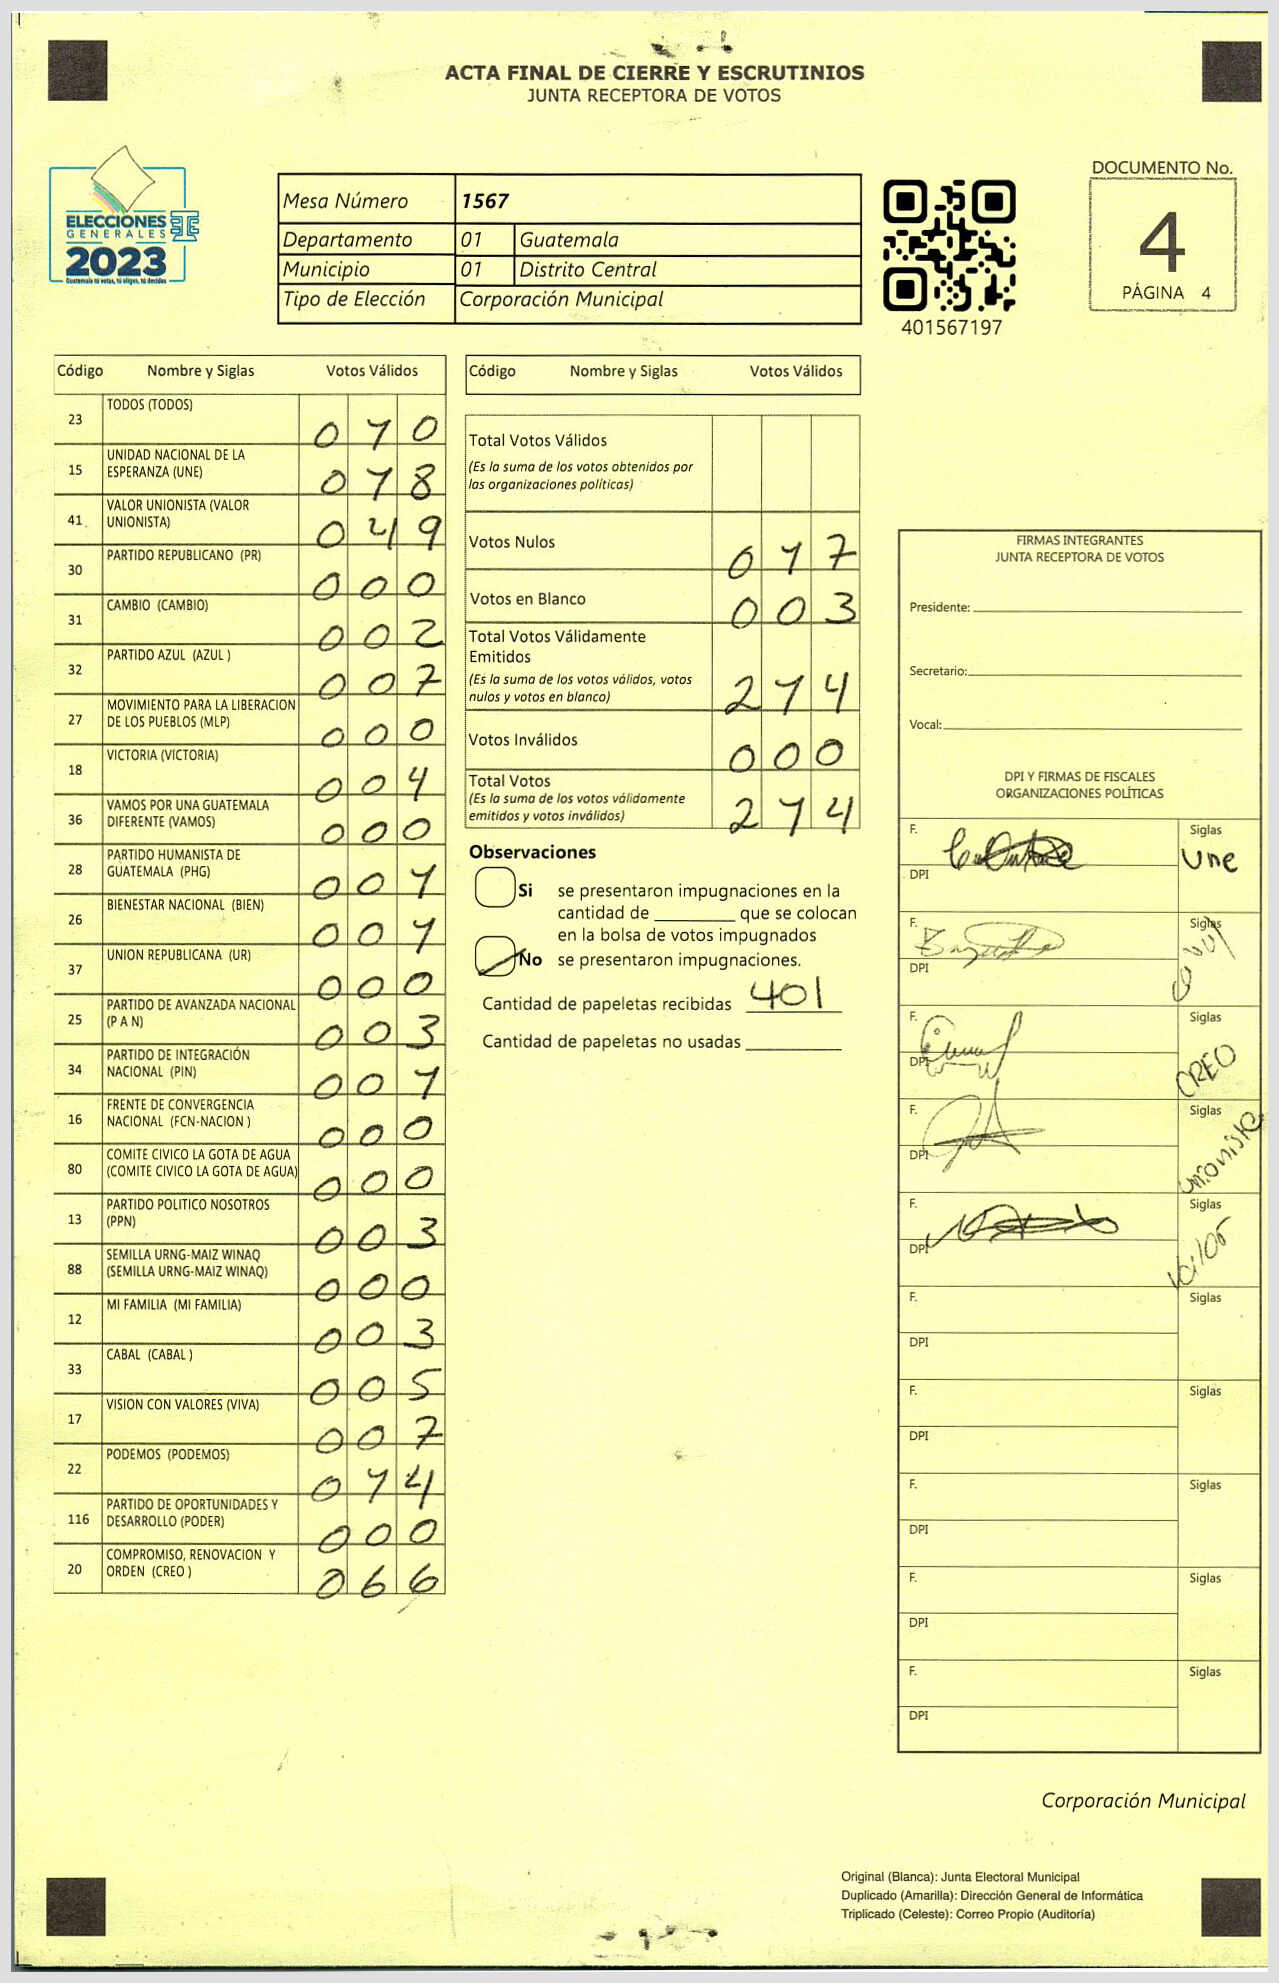 ACTA FINAL DE CIERRE Y ESCRUTINIOS
JUNTA RECEPTORA DE VOTOS
ELECCIONES
GENERALES
2023
Guatemala tú votas, tú eliges, tú decides
Mesa Número 1567
Departamento 01 Guatemala
Municipio 01 Distrito Central
Tipo de Elección Corporación Municipal
401567197
DOCUMENTO No.
4
PÁGINA 4
Código Nombre y Siglas Votos Válidos
23 TODOS (TODOS) 010
15 UNIDAD NACIONAL DE LA
ESPERANZA (UNE) 018
41 VALOR UNIONISTA (VALOR
UNIONISTA) 049
30 PARTIDO REPUBLICANO (PR) 000
31 CAMBIO (CAMBIO) 002
32 PARTIDO AZUL (AZUL ) 007
27 MOVIMIENTO PARA LA LIBERACION
DE LOS PUEBLOS (MLP) 000
18 VICTORIA (VICTORIA) 004
36 VAMOS POR UNA GUATEMALA
DIFERENTE (VAMOS) 000
28 PARTIDO HUMANISTA DE
GUATEMALA (PHG) 001
26 BIENESTAR NACIONAL (BIEN) 001
37 UNION REPUBLICANA (UR) 000
25 PARTIDO DE AVANZADA NACIONAL
(P A N) 003
34 PARTIDO DE INTEGRACIÓN
NACIONAL (PIN) 001
16 FRENTE DE CONVERGENCIA
NACIONAL (FCN-NACION ) 000
80 COMITE CIVICO LA GOTA DE AGUA
(COMITE CIVICO LA GOTA DE AGUA) 000
13 PARTIDO POLITICO NOSOTROS
(PPN) 003
88 SEMILLA URNG-MAIZ WINAQ
(SEMILLA URNG-MAIZ WINAQ) 000
12 MI FAMILIA (MI FAMILIA) 003
33 CABAL (CABAL ) 005
17 VISION CON VALORES (VIVA) 007
22 PODEMOS (PODEMOS) 014
116 PARTIDO DE OPORTUNIDADES Y
DESARROLLO (PODER) 000
20 COMPROMISO, RENOVACION Y
ORDEN (CREO ) 066
Código Nombre y Siglas Votos Válidos
Total Votos Válidos
(Es la suma de los votos obtenidos por
las organizaciones políticas)
Votos Nulos 017
Votos en Blanco 003
Total Votos Válidamente
Emitidos
(Es la suma de los votos válidos, votos
nulos y votos en blanco) 214
Votos Inválidos 000
Total Votos
(Es la suma de los votos válidamente
emitidos y votos inválidos) 214
Observaciones
Si se presentaron impugnaciones en la
cantidad de ________ que se colocan
en la bolsa de votos impugnados
No se presentaron impugnaciones.
Cantidad de papeletas recibidas 401
Cantidad de papeletas no usadas
FIRMAS INTEGRANTES
JUNTA RECEPTORA DE VOTOS
Presidente:
Secretario:
Vocal:
DPI Y FIRMAS DE FISCALES
ORGANIZACIONES POLÍTICAS
F. Siglas
Une
DPI
F. Siglas
DPI
F. Siglas
CREO
DPI
F. Siglas
unionista
DPI
F. Siglas
DPI
F. Siglas
DPI
F. Siglas
DPI
F. Siglas
DPI
F. Siglas
DPI
F. Siglas
DPI
Corporación Municipal
Original (Blanca): Junta Electoral Municipal
Duplicado (Amarilla): Dirección General de Informática
Triplicado (Celeste): Correo Propio (Auditoría)